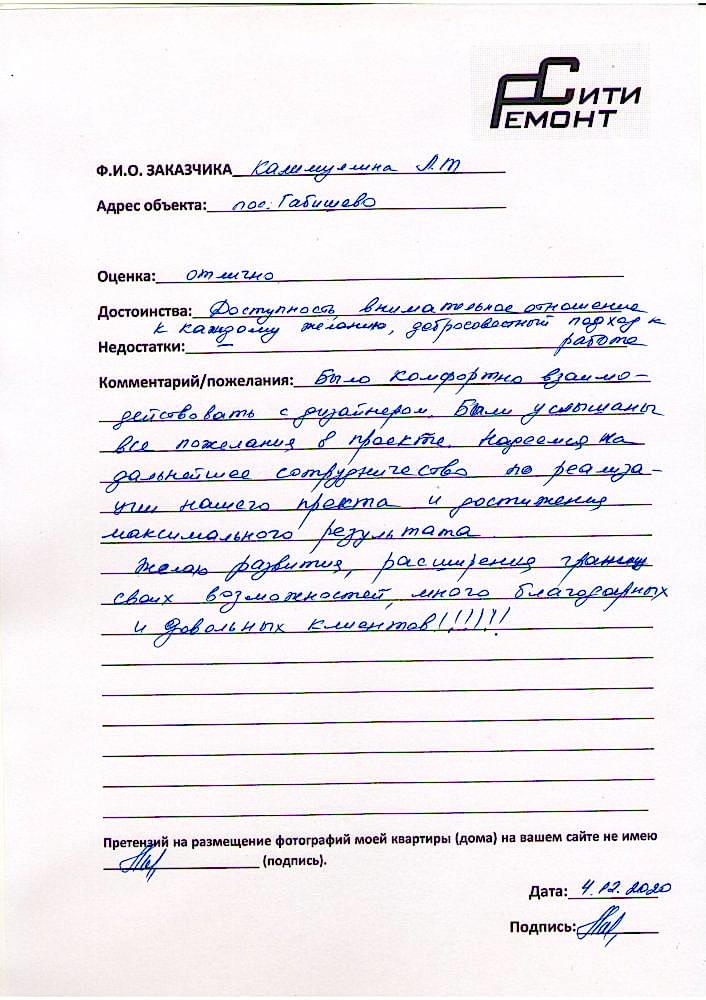 Сити
Ремонт
Ф.И.О. ЗАКАЗЧИКА Калимуллина Л.Т
Адрес объекта: пос. Габишево
Оценка: отлично
Достоинства: Доступность внимательное отношение
к каждому желанию, добросовестный подход к
работе
Недостатки: –
Комментарий/пожелания: Было комфортно взаимо-
действовать с дизайнером. Были услышаны
все пожелания в проекте. Надеемся на
дальнейшее сотрудничество по реализа-
ции нашего пректа и достижения
максимального результата
Желаю развития, расширения границ
своих возможностей, много благодарных
и довольных клиентов!!!!!!
Претензий на размещение фотографий моей квартиры (дома) на вашем сайте не имею
(подпись).
Дата: 4.12.2020
Подпись: